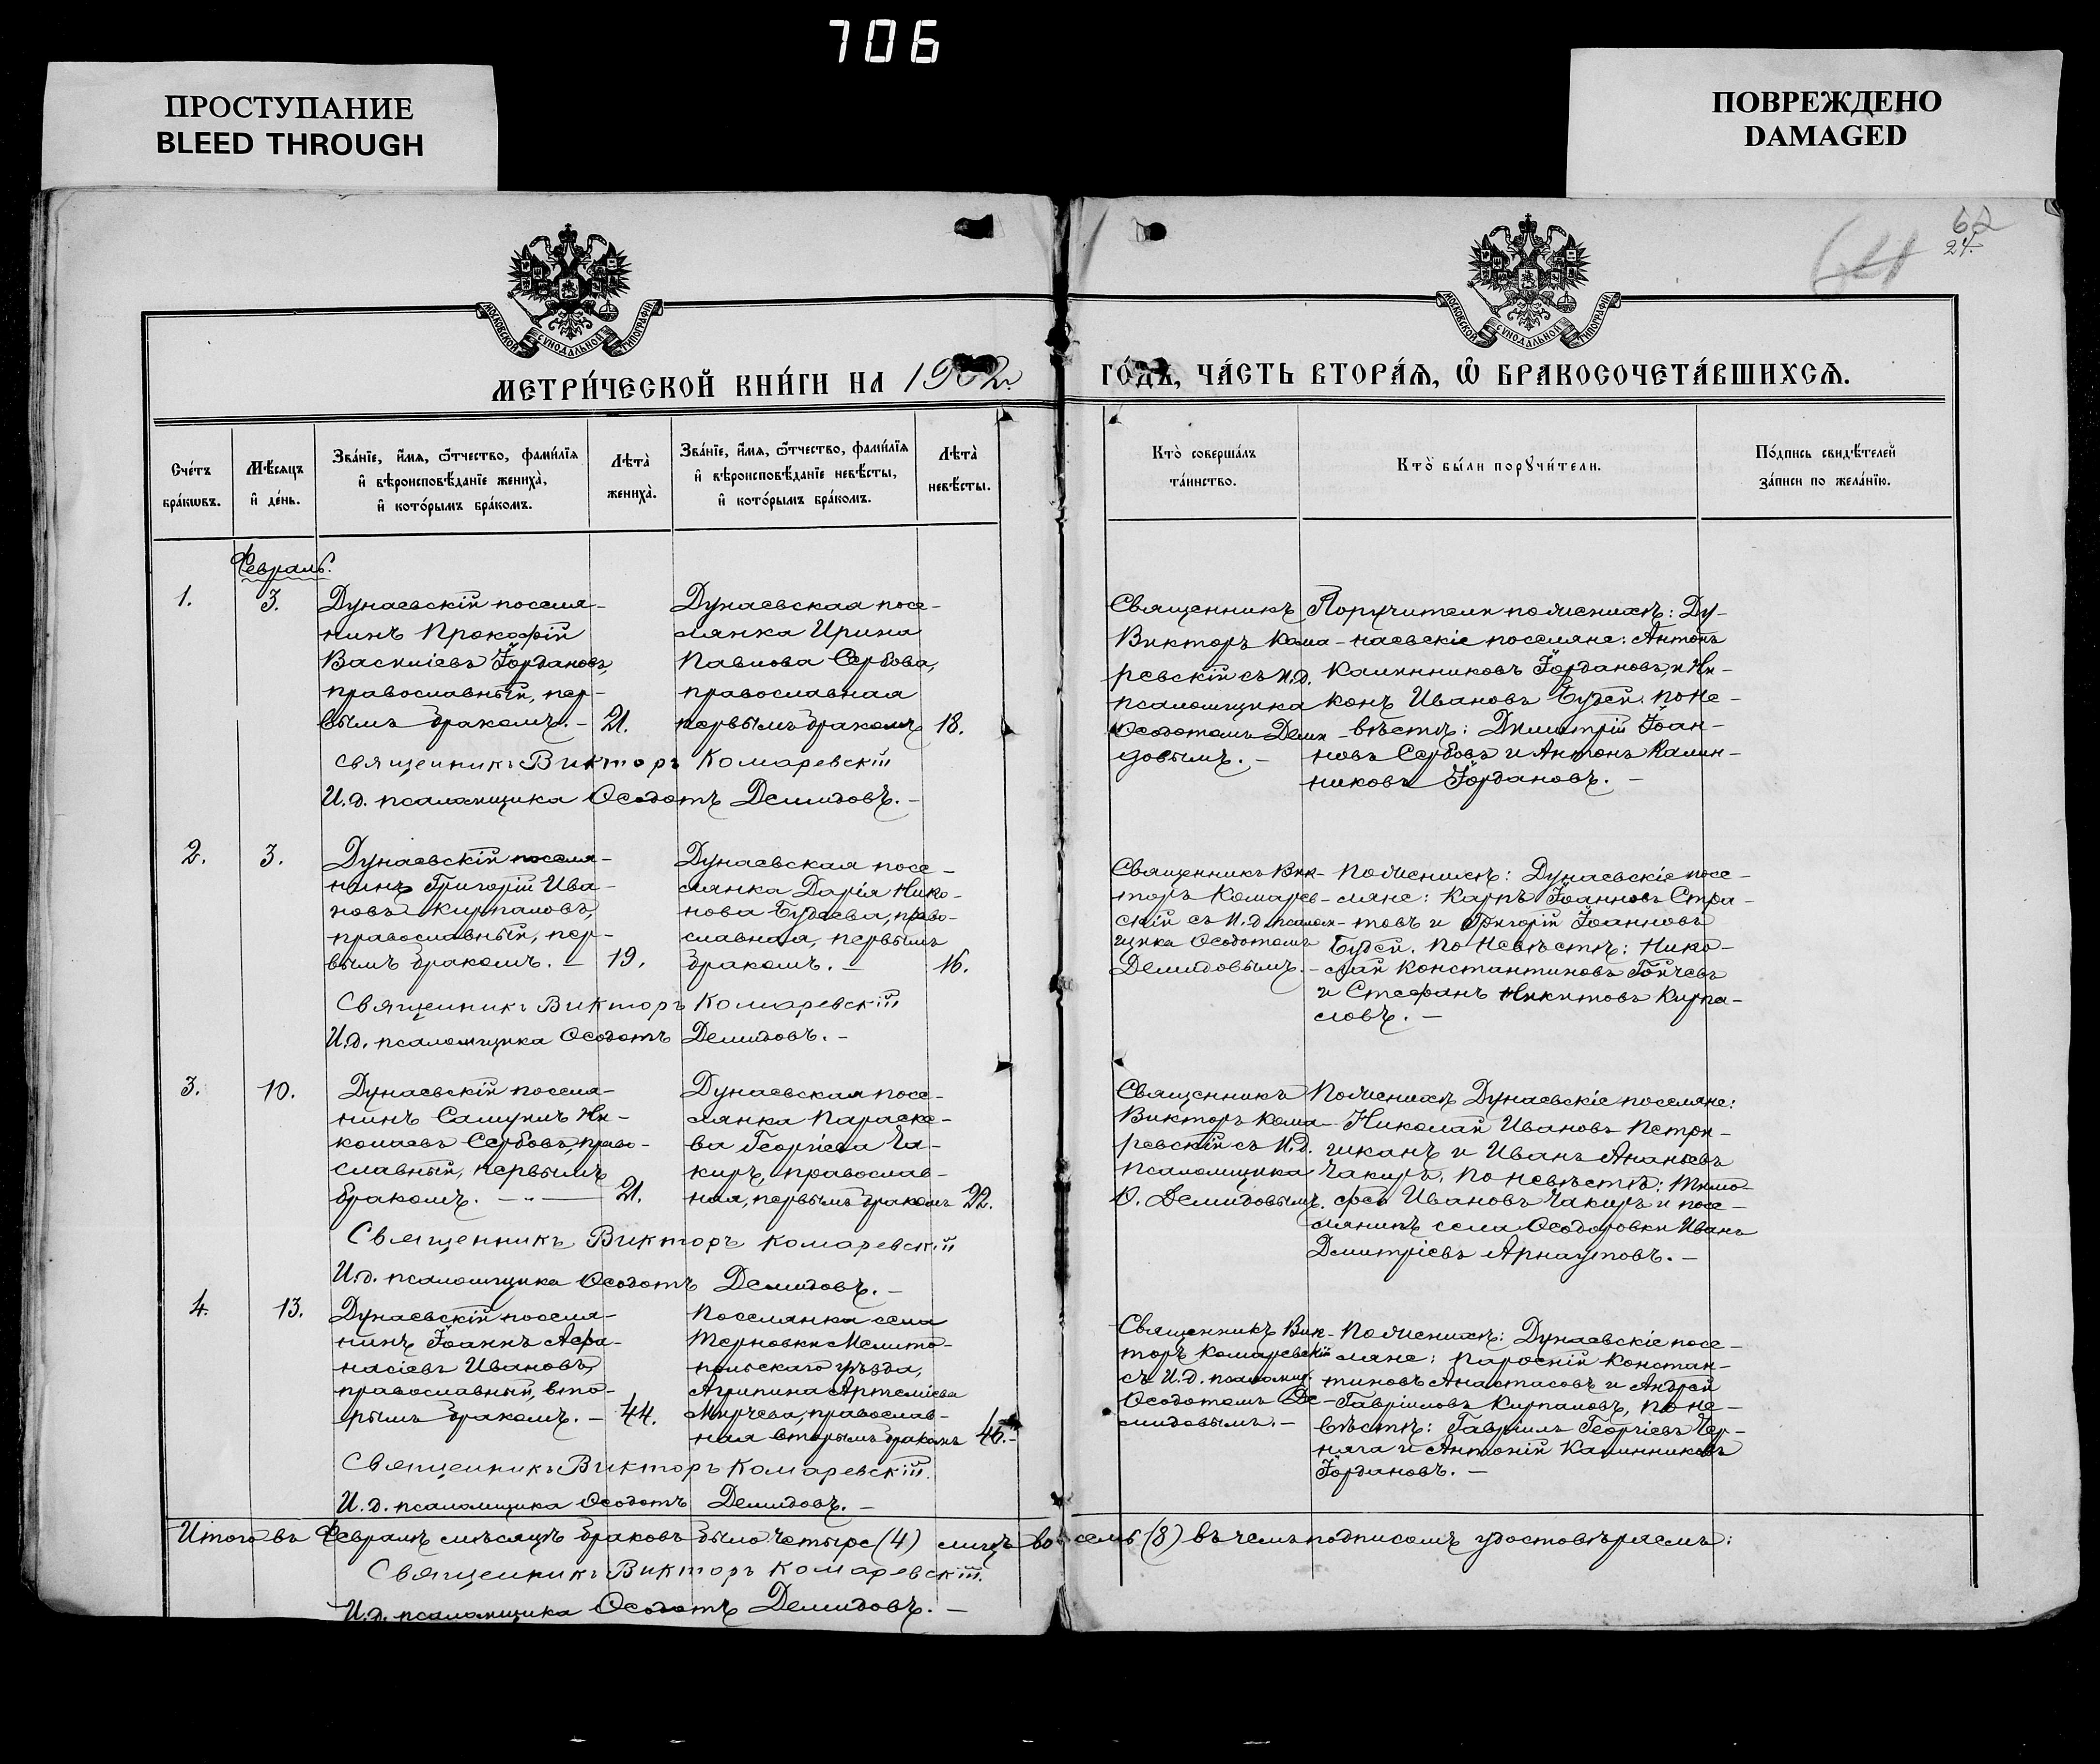 706
ПРОСТУПАНИЕ
BLEED THROUGH
ПОВРЕЖДЕНО
DAMAGED
62
24.
МОСКОВСКОЙ СѴНОДАЛЬНОЙ ТИПОГРАФІИ
МОСКОВСКОЙ СѴНОДАЛЬНОЙ ТИПОГРАФІИ
МЕТРИ́ЧЕСКОЙ КНИ́ГИ НА 1902 г.
ГО́ДЪ, ЧА́СТЬ ВТОРА́Я, Ѡ БРАКОСОЧЕТА́ВШИХСЯ.
Сче́тъ бра́кѡвъ.
Мѣ́сяцъ и҆ де́нь.
Зва́нїе, и҆́мя, ѻ҆́тчество, фами́лїя и҆ вѣроисповѣ́данїе жениха̀, и҆ кото́рымъ бра́комъ.
Лѣта̀ жениха̀.
Зва́нїе, и҆́мя, ѻ҆́тчество, фами́лїя и҆ вѣроисповѣ́данїе невѣ́сты, и҆ кото́рымъ бра́комъ.
Лѣта̀ невѣ́сты.
Кто̀ соверша́лъ та́инство.
Кто̀ бы́ли порꙋчи́тели.
По́дпись свидѣ́телей за́писи по жела́нїю.
Февраль.
1.
3.
Дунаевскій поселя-
нинъ Прокофій
Василіевъ Іордановъ,
православный, пер-
вымъ бракомъ. –
21.
Дунаевская посе-
лянка Ирина
Павлова Сербова,
православная
первымъ бракомъ
18.
Священникъ
Викторъ Кома-
ревскій съ И.д.
псаломщика
Ѳеодотомъ Деми-
довымъ. –
Поручители по женихѣ: Ду-
наевскіе поселяне: Антонъ
Калинниковъ Іордановъ, и Ни-
конъ Ивановъ Будей. По не-
вѣстѣ: Димитрій Іоан-
новъ Сербовъ и Антонъ Калин-
никовъ Іордановъ. –
Священникъ Викторъ Комаревскій
И.д. псаломщика Ѳеодотъ Демидовъ. –
2.
3.
Дунаевскій поселя-
нинъ Григорій Ива-
новъ Кирпаловъ,
православный, пер-
вымъ бракомъ. –
19.
Дунаевская посе-
лянка Дарія Нико-
нова Будеева, право-
славная, первымъ
бракомъ. –
16.
Священникъ Вик-
торъ Комарев-
скій съ И.д. псалом-
щика Ѳеодотомъ
Демидовымъ. –
По женихѣ: Дунаевскіе посе-
ляне: Карпъ Іоанновъ Стра-
товъ и Григорій Іоанновъ
Будей. По невѣстѣ: Нико-
лай Константиновъ Гойчевъ
и Стефанъ Никитовъ Кирпа-
ловъ. –
Священникъ Викторъ Комаревскій
И.д. псаломщика Ѳеодотъ Демидовъ. –
3.
10.
Дунаевскій поселя-
нинъ Самуилъ Ни-
колаевъ Сербовъ, право-
славный, первымъ
бракомъ. – „ –
21.
Дунаевская посе-
лянка Параске-
ва Георгіева Ча-
киръ, православ-
ная, первымъ бракомъ
22.
Священникъ
Викторъ Кома-
ревскій съ И.д.
псаломщика
Ѳ. Демидовымъ.
По женихѣ Дунаевскіе поселяне:
Николай Ивановъ Петри-
чиканъ и Иванъ Ананьевъ
Чакиръ. По невѣстѣ: Тимо-
фей Ивановъ Чакиръ и посе-
лянинъ села Ѳеодоровки Иванъ
Дмитріевъ Арнаутовъ. –
Священникъ Викторъ Комаревскій
И.д. псаломщика Ѳеодотъ Демидовъ. –
4.
13.
Дунаевскій поселя-
нинъ Іоаннъ Афа-
насіевъ Ивановъ,
православный, вто-
рымъ бракомъ. –
44.
Поселянка села
Терновки Мелито-
польскаго уѣзда,
Агрипина Артеміева
Мирчева, православ-
ная вторымъ бракомъ
46. –
Священникъ Вик-
торъ Комаревскій
съ И.д. псаломщ.
Ѳеодотомъ Де-
мидовымъ. –
По женихѣ: Дунаевскіе посе-
ляне: Парѳеній Констан-
тиновъ Анастасовъ и Андрей
Гавріиловъ Кирпаловъ, по не-
вѣстѣ: Гавріилъ Георгіевъ Чер-
няга и Антоній Калинниковъ
Іордановъ. –
Священникъ Викторъ Комаревскій.
И.д. псаломщика Ѳеодотъ Демидовъ. –
Итого въ Февралѣ мѣсяцѣ браковъ было четыре (4) лицъ восемь (8) въ чемъ подписомъ удостовѣряемъ:
Священникъ Викторъ Комаревскій.
И.д. псаломщика Ѳеодотъ Демидовъ. –